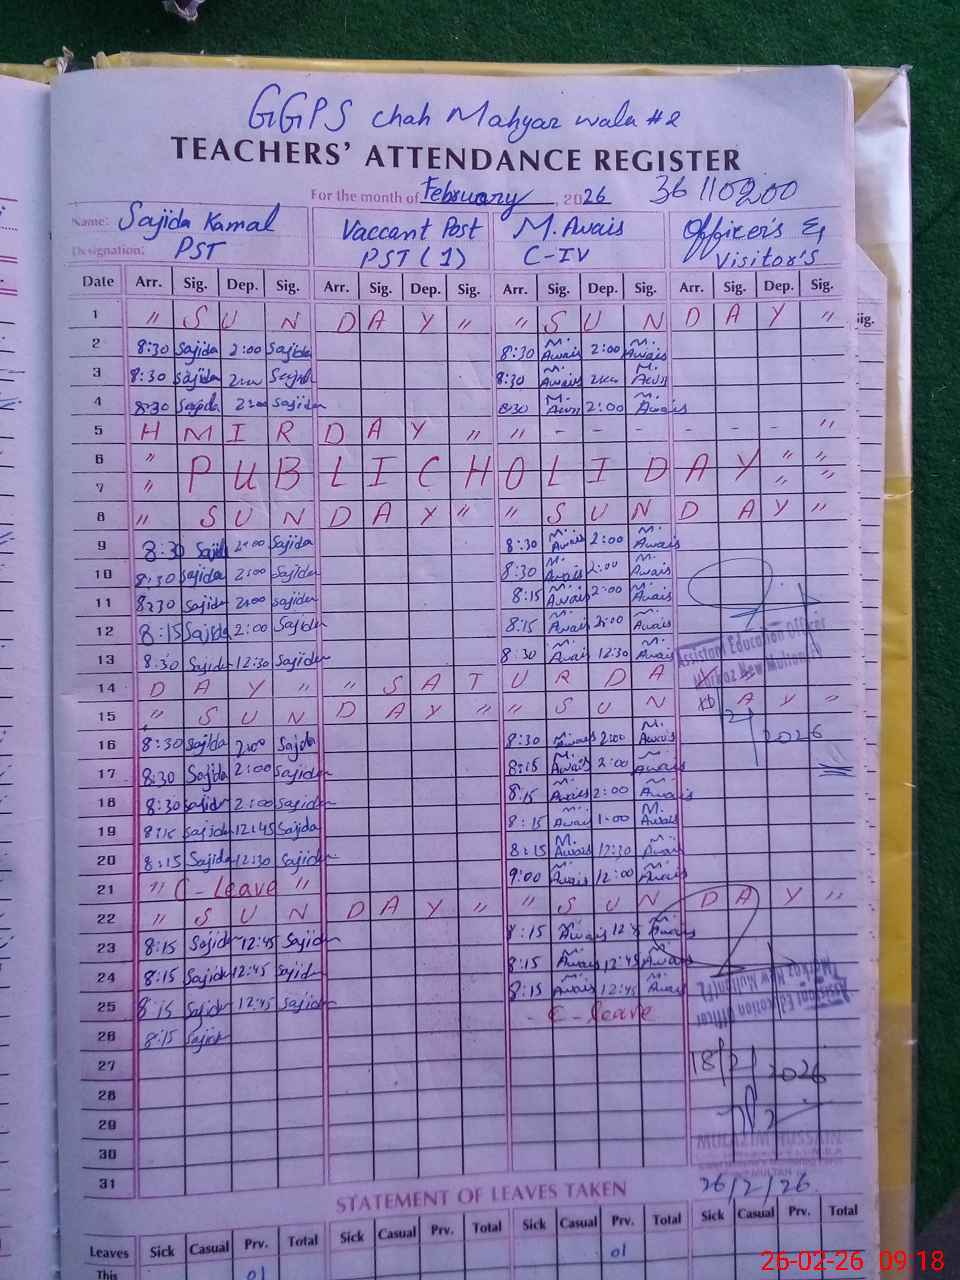 GGPS Chah Mahyar wala #2
TEACHERS' ATTENDANCE REGISTER
For the month of February, 2026 36110200
Name: Sajida Kamal Vaccant Post M. Awais Officer's &
Designation: PST PST (1) C-IV Visitor's
Date Arr. Sig. Dep. Sig. Arr. Sig. Dep. Sig. Arr. Sig. Dep. Sig. Arr. Sig. Dep. Sig.
1 " S U N D A Y " " S U N D A Y "
2 8:30 Sajida 2:00 Sajida 8:30 M. Awais 2:00 M. Awais
3 8:30 Sajida 2:00 Sajida 8:30 M. Awais 2:00 M. Awais
4 8:30 Sajida 2:00 Sajida 8:30 M. Awais 2:00 M. Awais
5 H M I R D A Y " " - - - - - - "
6 " P U B L I C H O L I D A Y " "
7 " " "
8 " S U N D A Y " " S U N D A Y "
9 8:30 Sajida 2:00 Sajida 8:30 M. Awais 2:00 M. Awais
10 8:30 Sajida 2:00 Sajida 8:30 M. Awais 2:00 M. Awais
11 8:30 Sajida 2:00 Sajida 8:15 M. Awais 2:00 M. Awais
12 8:15 Sajida 2:00 Sajida 8:15 M. Awais 2:00 M. Awais
13 8:30 Sajida 12:30 Sajida 8:30 M. Awais 12:30 M. Awais
Assistant Education Officer
Markaz New Multan
14 D A Y " " S A T U R D A
15 " S U N D A Y " " S U N A Y "
2026
16 8:30 Sajida 2:00 Sajida 8:30 M. Awais 2:00 M. Awais
17 8:30 Sajida 2:00 Sajida 8:15 M. Awais 2:00 M. Awais
18 8:30 Sajida 2:00 Sajida 8:15 M. Awais 2:00 M. Awais
19 8:15 Sajida 12:45 Sajida 8:15 M. Awais 1:00 M. Awais
20 8:15 Sajida 12:30 Sajida 8:15 M. Awais 12:30 M. Awais
21 " C-Leave " 9:00 M. Awais 12:00 M. Awais
22 " S U N D A Y " " S U N D A Y "
23 8:15 Sajida 12:45 Sajida 8:15 M. Awais 12:45 M. Awais
24 8:15 Sajida 12:45 Sajida 8:15 M. Awais 12:45 M. Awais
25 8:15 Sajida 12:45 Sajida 8:15 M. Awais 12:45 M. Awais
Assistant Education Officer
Markaz New Multan
26 8:15 Sajida - C-leave
27
18/2/2026
28
29
30
MUMTAZ HUSSAIN
31
26/2/26
STATEMENT OF LEAVES TAKEN
Leaves Sick Casual Prv. Total Sick Casual Prv. Total Sick Casual Prv. Total Sick Casual Prv. Total
This 01 01
26-02-26 09:18